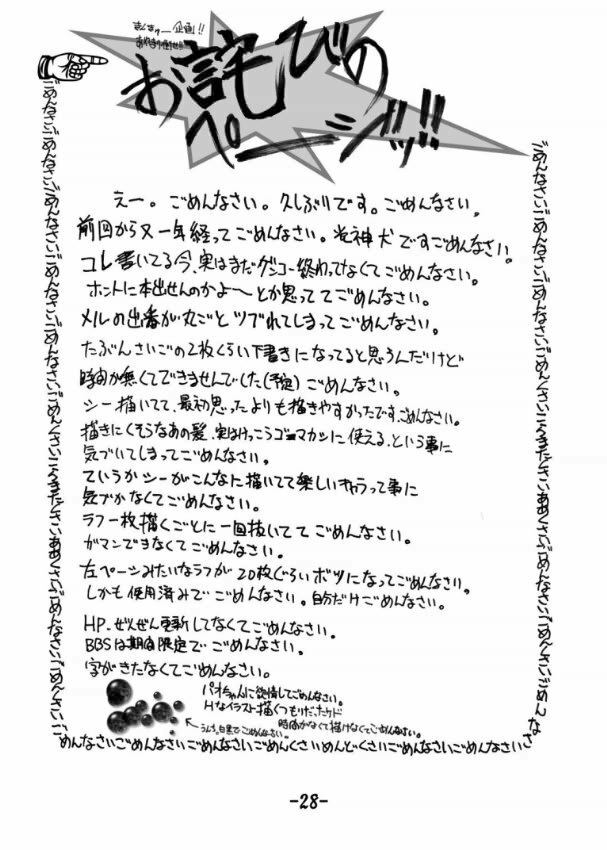 まんきゅー企画!!
お詫びの
ページッ!!
えー。ごめんなさい。久しぶりです。ごめんなさい。
前回から又一年経ってごめんなさい。光神犬ですごめんなさい。
コレ書いてる今、実はまだゲンコー終わってなくてごめんなさい。
ホントに本出せんのかよ〜とか思っててごめんなさい。
メルの出番が丸ごとツブれてしまってごめんなさい。
たぶんさいごの2枚くらい下書きになってると思うんだけど
時間が無くてできませんでした(予定)ごめんなさい。
シー描いてて、最初思ったよりも描きやすかったです、ごめんなさい。
描きにくそうなあの髪、実はけっこうゴマカシに使える、という事に
気づいてしまってごめんなさい。
ていうかシーがこんなに描いてて楽しいキャラって事に
気づかなくてごめんなさい。
ラフ一枚描くごとに一回抜いててごめんなさい。
ガマンできなくてごめんなさい。
左ページみたいなラフが20枚ぐらいボツになってごめんなさい。
しかも使用済みでごめんなさい。自分だけごめんなさい。
HP、ぜんぜん更新してなくてごめんなさい。
BBSは期間限定でごめんなさい。
字がきたなくてごめんなさい。
パオちゃんに欲情してごめんなさい。
Hなイラスト描くつもりだったケド
時間がなくて描けなくてごめんなさい。
ごめんなさいごめんなさいごめんなさい
めんなさいごめんなさいごめんなさいごめんくさいめんどくさいごめんなさいごめんなさい
-28-